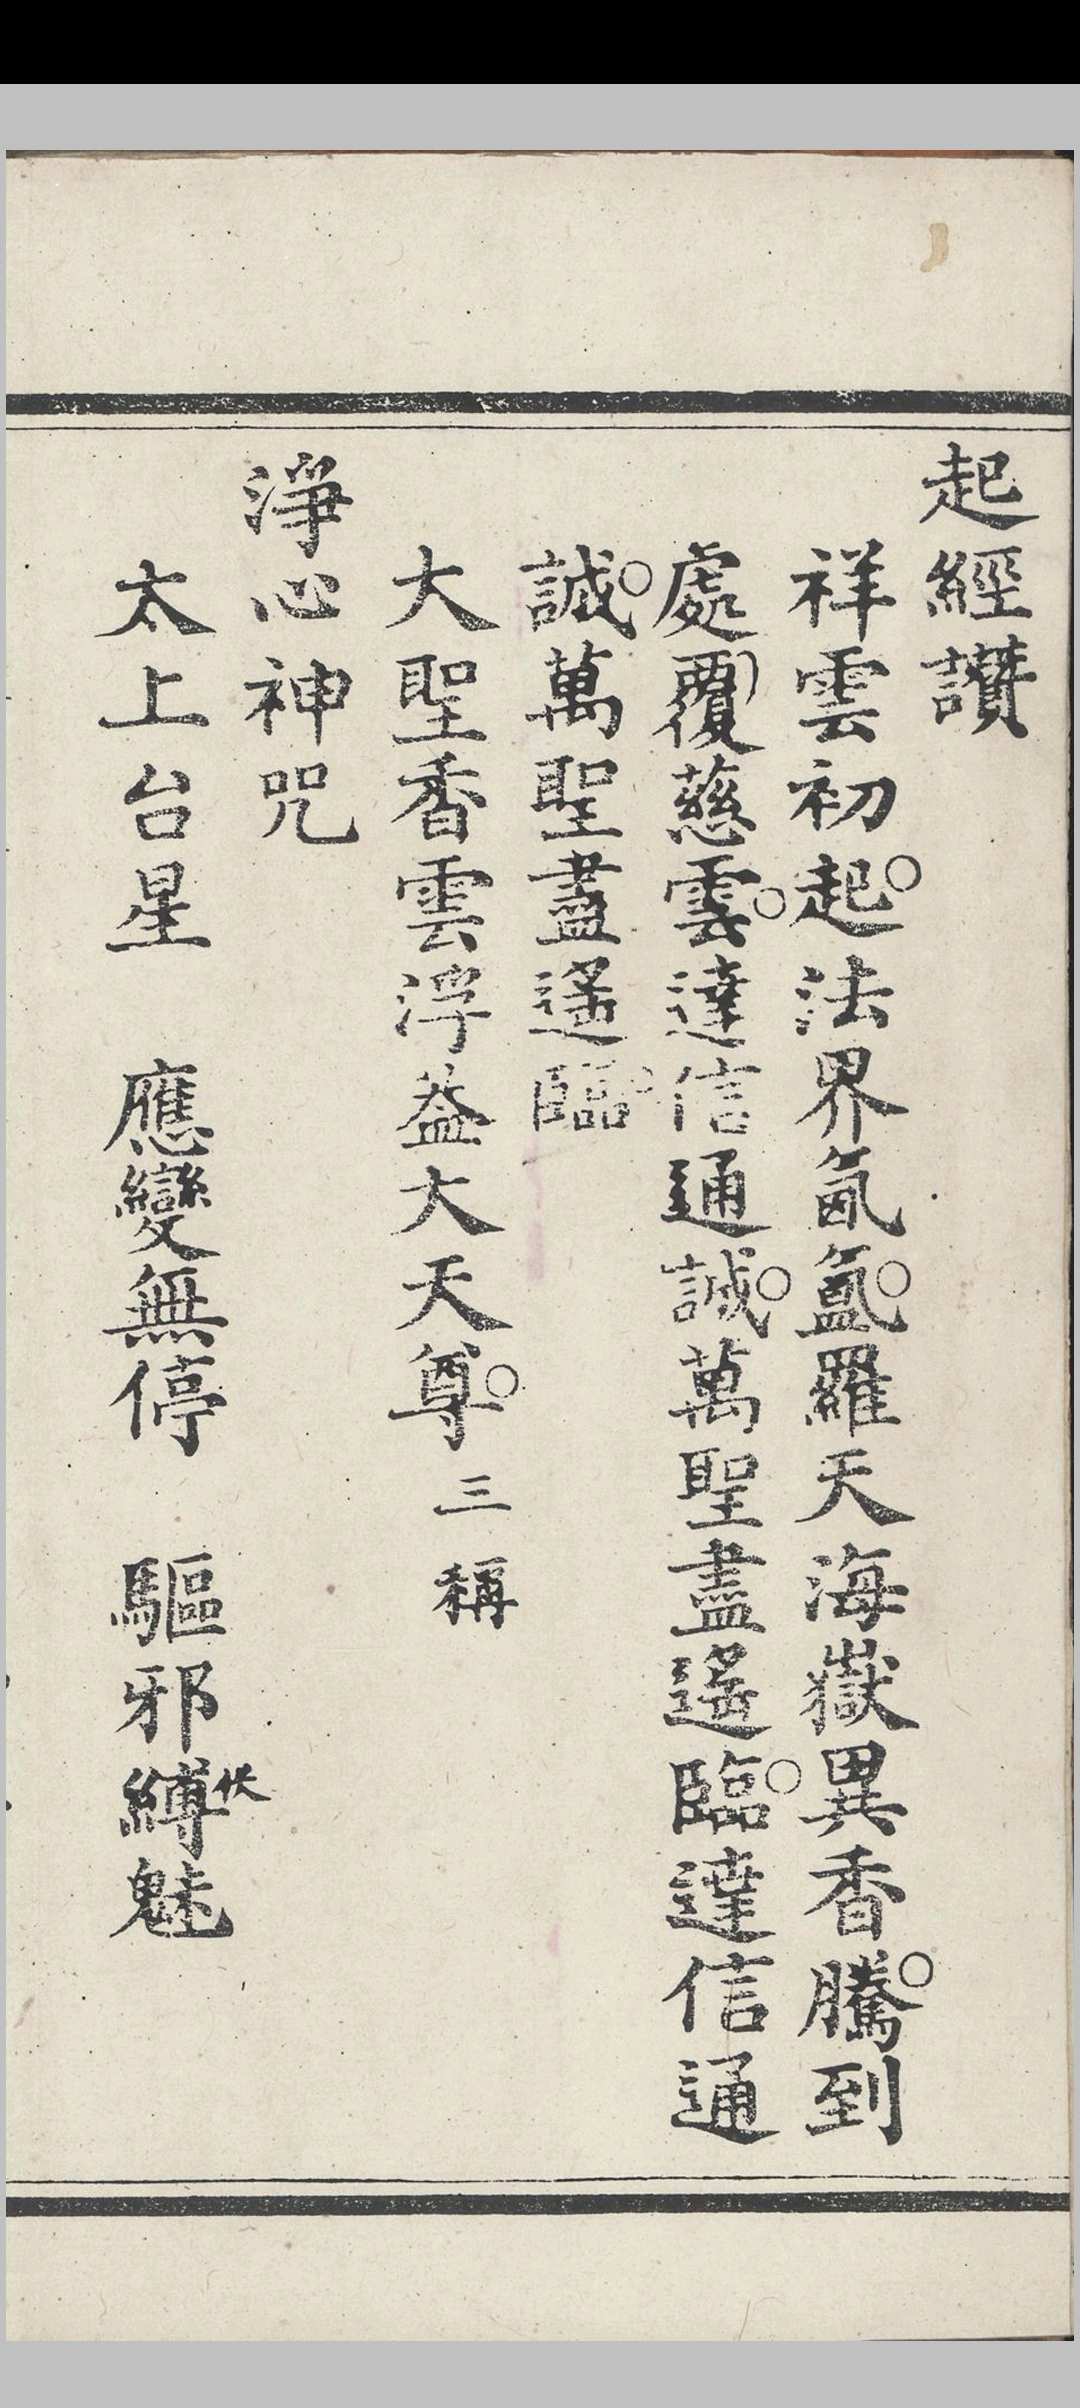 起經讚
祥雲初起○法界氤氳○羅天海嶽異香騰○到
處覆慈雲○達信通誠○萬聖盡遙臨○達信通
誠○萬聖盡遙臨
大聖香雲浮蓋大天尊○三稱
淨心神咒
太上台星 應變無停 驅邪縛魅
伏